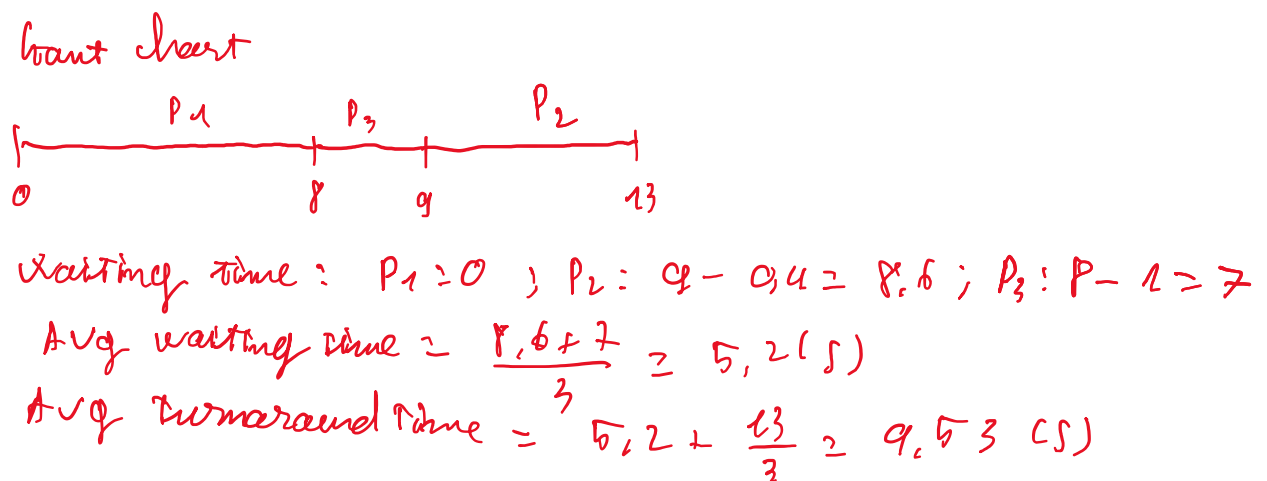 Gant chart
P1 P3 P2
0 8 9 13
Waiting time: P1 = 0 ; P2: 9 - 0,4 = 8.6 ; P3: 8 - 1 = 7
Avg waiting time = 8,6 + 7 / 3 = 5,2 (s)
Avg turnaround time = 5,2 + 13 / 3 = 9,53 (s)